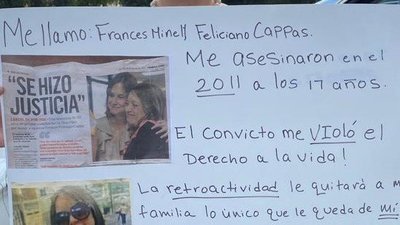 Me llamo: Frances Minelly Feliciano Cappas.
Me asesinaron en el
2011 a los 17 años.
"SE HIZO
JUSTICIA"
El Convicto me VIOLÓ el
Derecho a la vida!
La retroactividad le quitará a m
familia lo único que le queda de mí